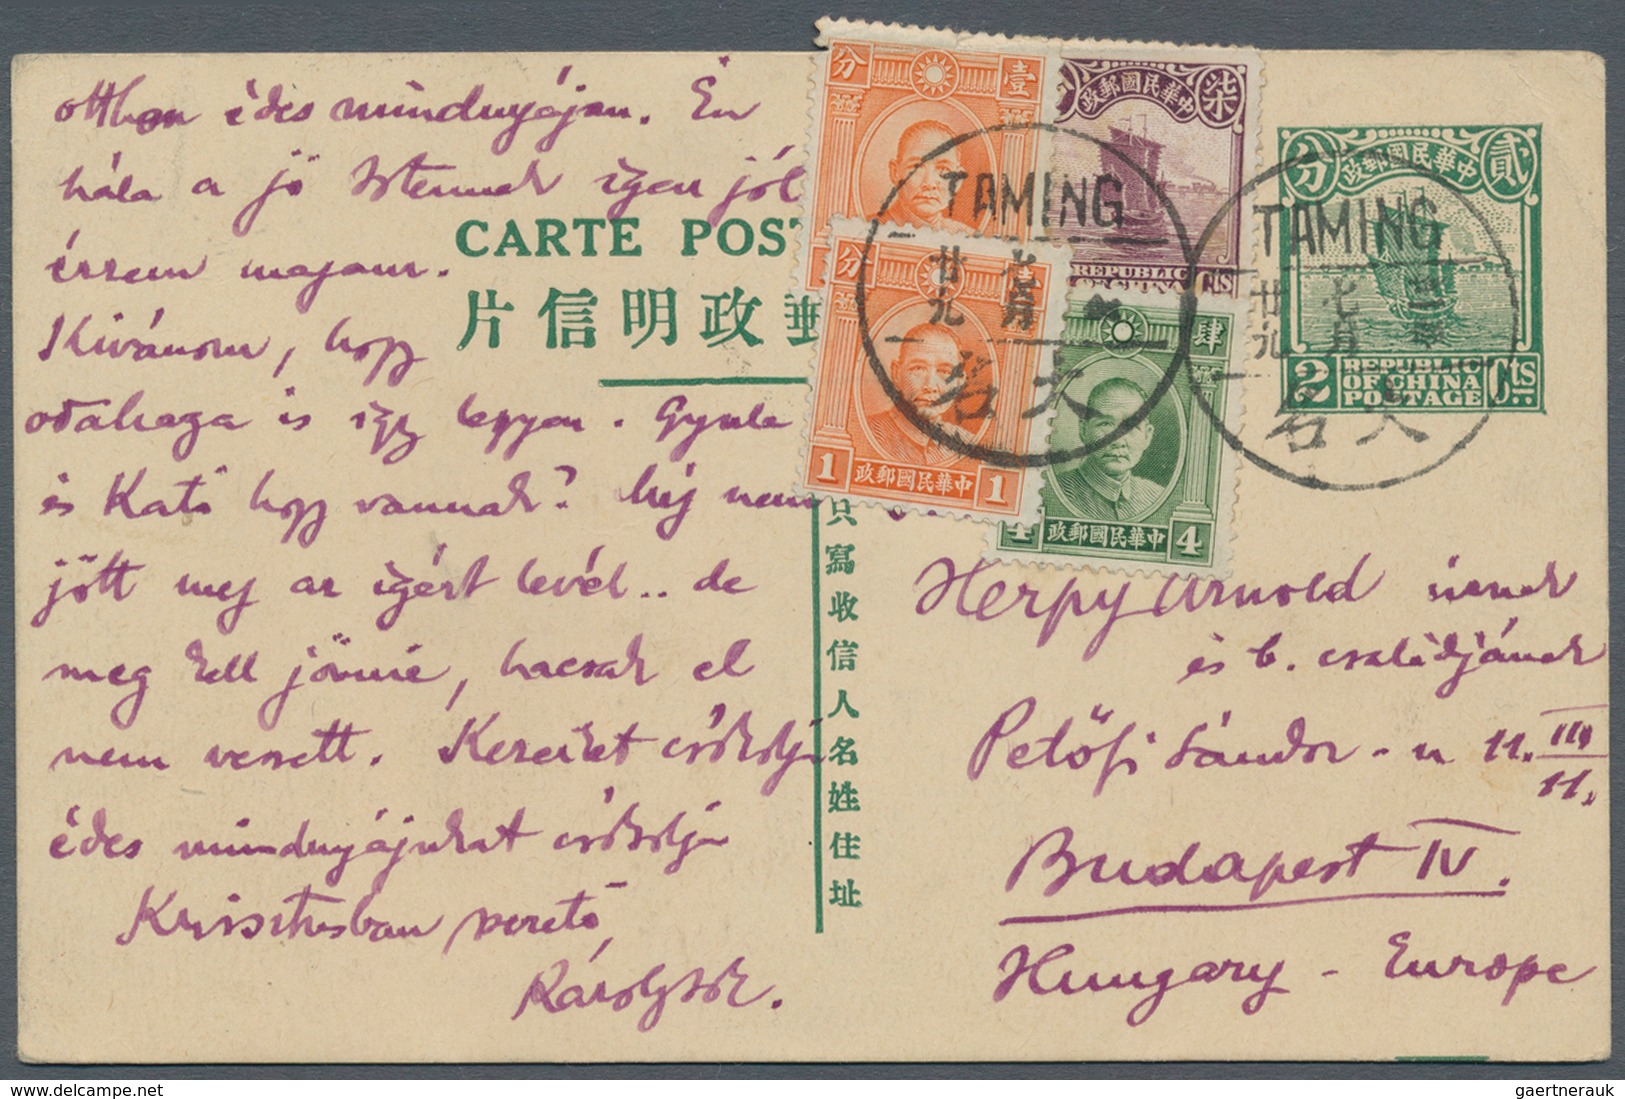 otthon édes mindnyájan. Én
hála a jó Istennek igen jól
érzem magam.
Kivánom, hogy
odahaza is így legyen. Gyula
és Kató hogy vannak? Még nem
jött meg az ígért levél.. de
meg kell jönnie, hacsak el
nem veszett. Kezeiket csókolja
édes mindnyájukat csókolja
Krisztusban szerető
CARTE POST
片信明政郵
只寫收信人名姓住址
分 壹
柒
中華民國郵政
REPUBLIC
OF CHINA
Cts
分
1 中華民國郵政 1
肆
4 中華民國郵政 4
分 中華民國郵政 貳
2 REPUBLIC OF CHINA POSTAGE Cts
TAMING
廿九 七月
大名
TAMING
廿九 七月
大名
Herpy Arnold úrnak
és b. családjának
Petőfi Sándor-u 11. III/11.
Budapest IV.
Hungary - Europe
gaertnerauk / delcampe.net